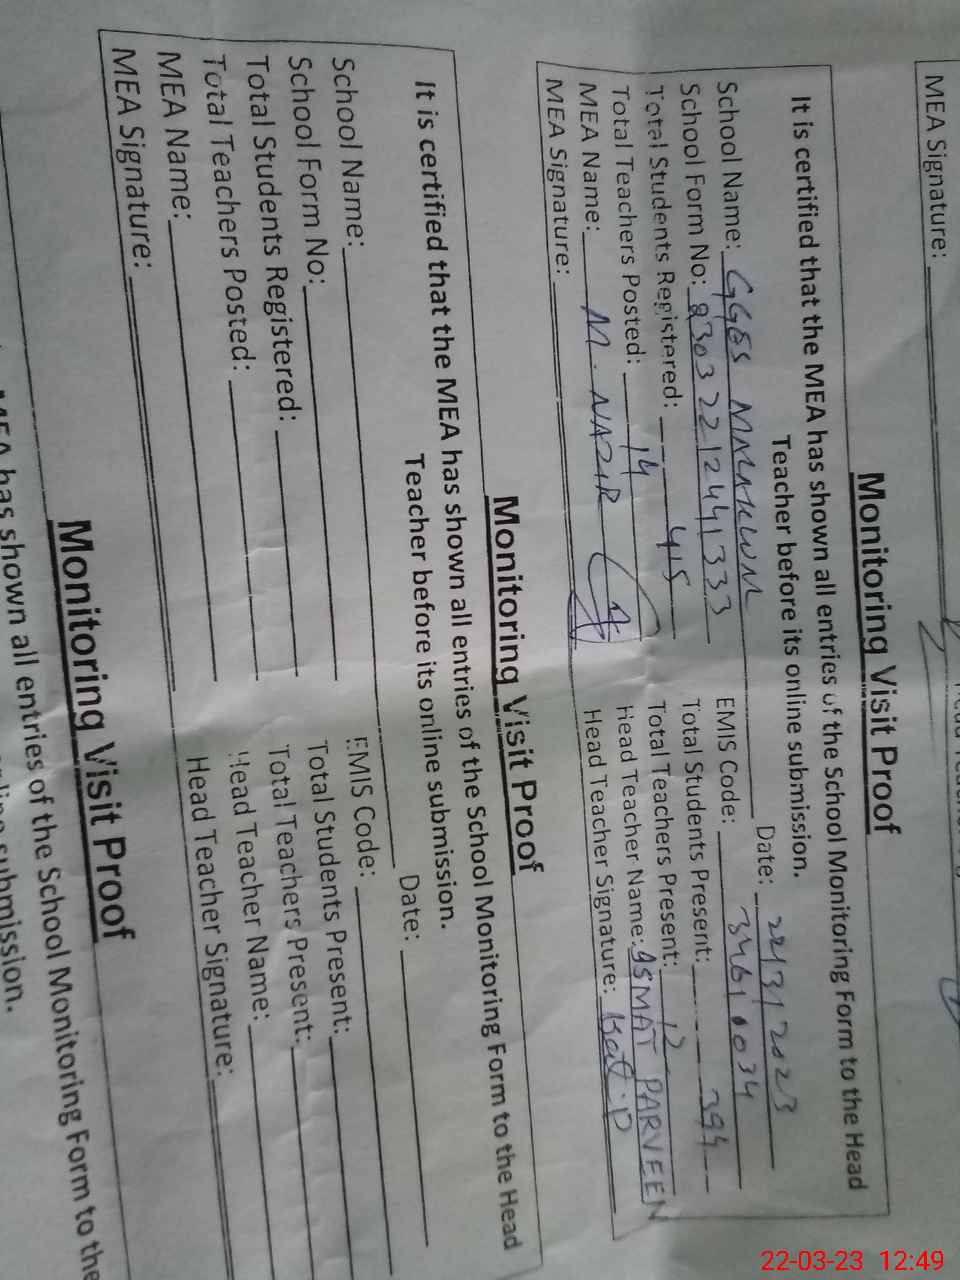 MEA Signature:
Monitoring Visit Proof
It is certified that the MEA has shown all entries of the School Monitoring Form to the Head
Teacher before its online submission.
Date: 22/3/2023
School Name: GGES EMIS Code:
School Form No: Total Students Present: 394
Total Students Registered: 415 Total Teachers Present: 12
Total Teachers Posted: 14 Head Teacher Name: ASMAT PARVEEN
MEA Name: M. NAZIR Head Teacher Signature:
MEA Signature:
Monitoring Visit Proof
It is certified that the MEA has shown all entries of the School Monitoring Form to the Head
Teacher before its online submission.
Date:
School Name: EMIS Code:
School Form No: Total Students Present:
Total Students Registered: Total Teachers Present:
Total Teachers Posted: Head Teacher Name:
MEA Name: Head Teacher Signature:
MEA Signature:
Monitoring Visit Proof
MEA has shown all entries of the School Monitoring Form to the
submission.
22-03-23 12:49